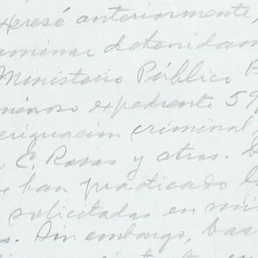 expresé anteriormente,
minar detenidam
Ministerio Público
minoso expediente 59
eriguacion criminal
E. Rosas y otros.
han practicado
solicitadas en mi
s. Sin embargo, bas